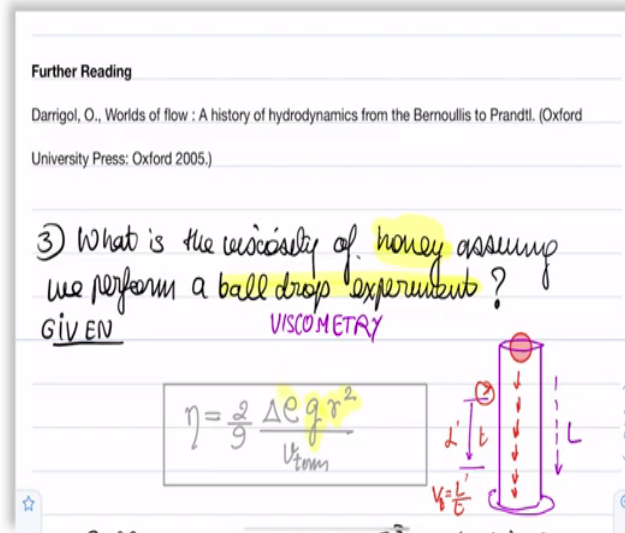 Further Reading
Darrigol, O., Worlds of flow : A history of hydrodynamics from the Bernoullis to Prandtl. (Oxford
University Press: Oxford 2005.)
③ What is the viscosity of honey assuming
we perform a ball drop experiment ?
GIVEN
VISCOMETRY
η = 2/9 Δρgr²/v_term
L' t L
V_t = L'/t